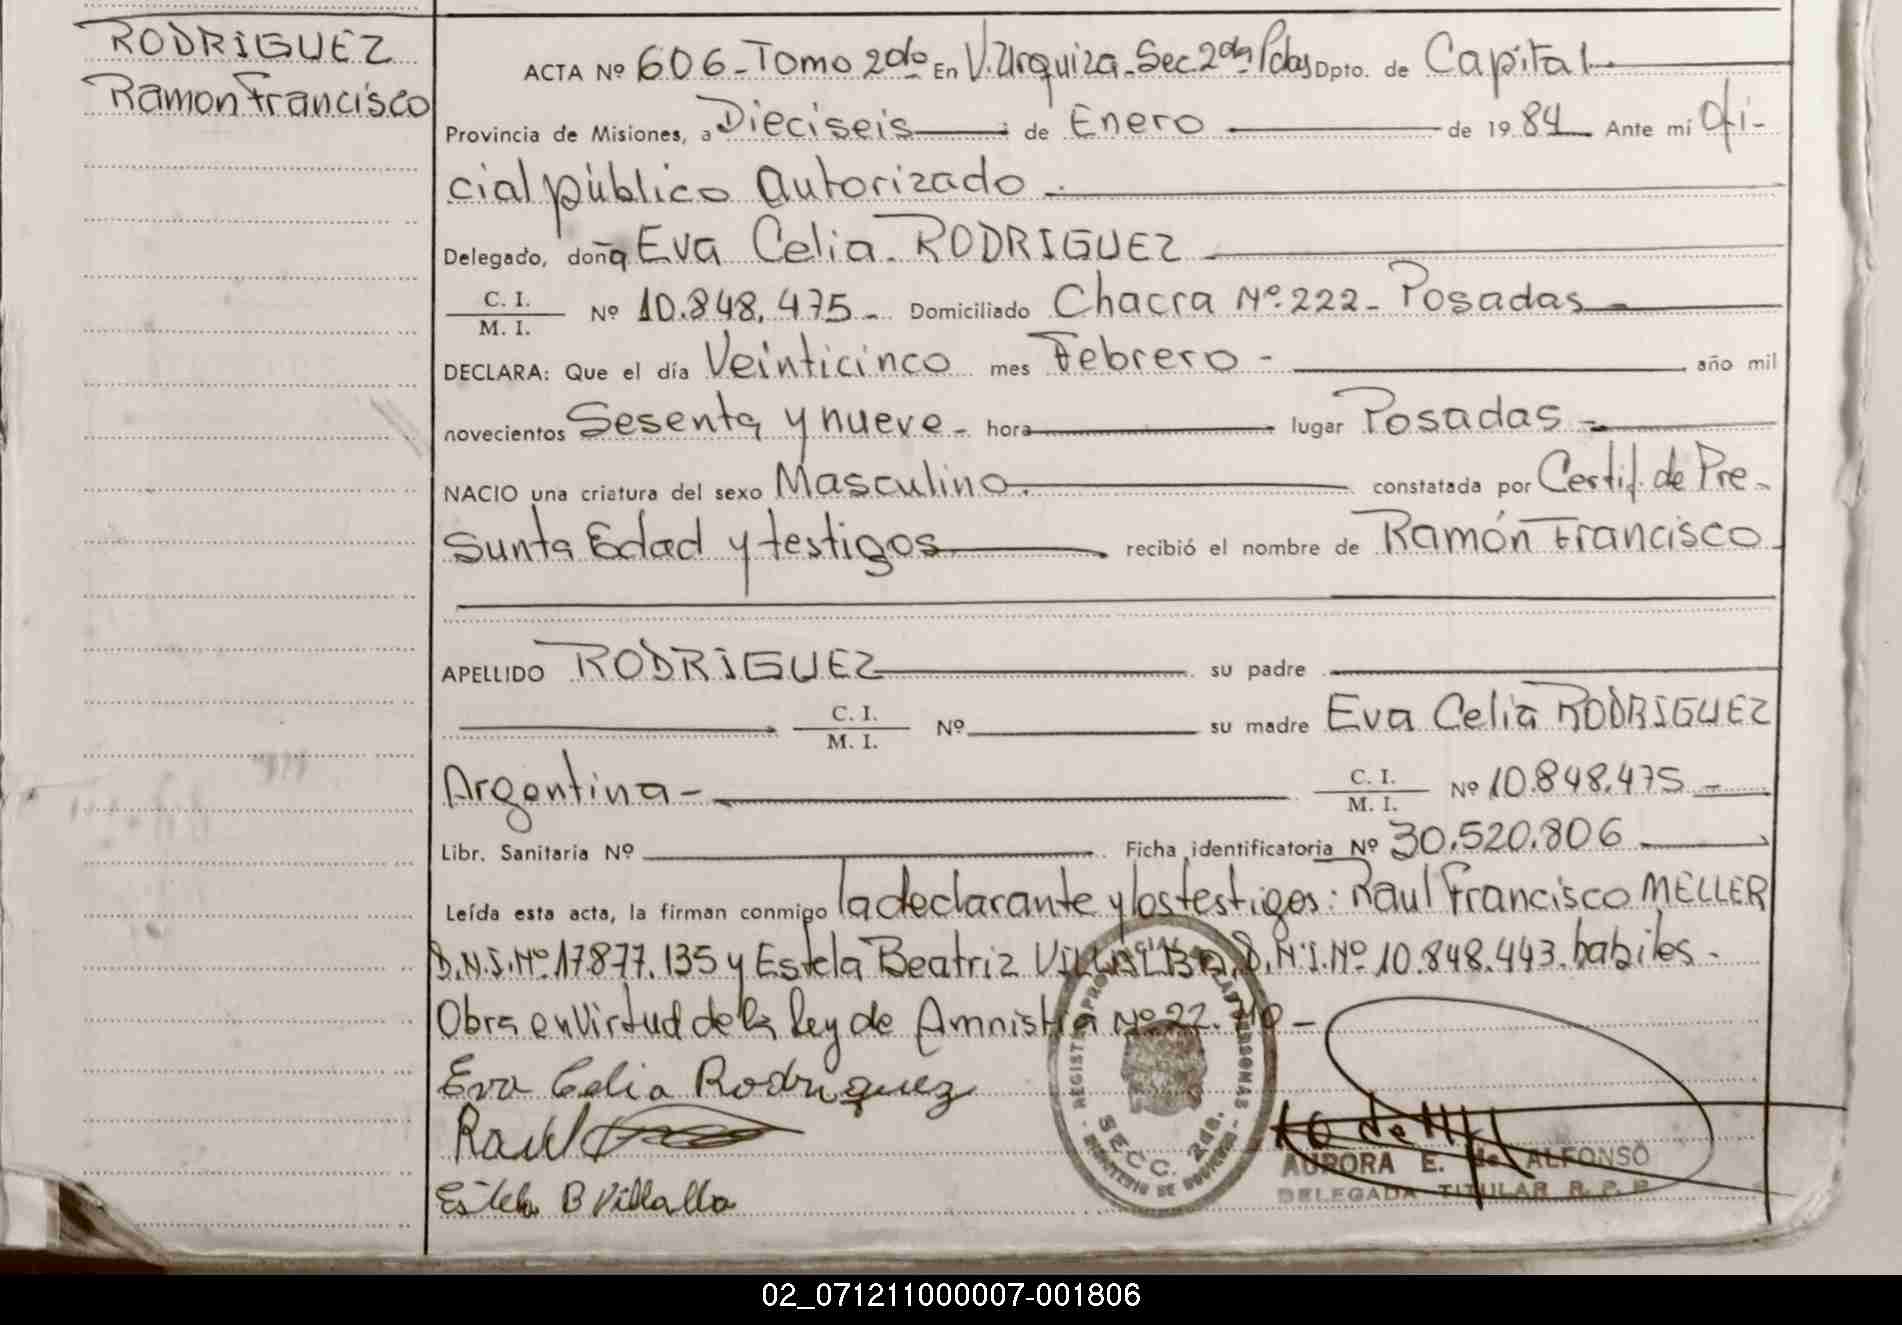 RODRIGUEZ
Ramon Francisco
ACTA Nº 606 - Tomo 2do En V. Urquiza - Sec. 2da Pdas Dpto. de Capital
Provincia de Misiones, a Dieciseis de Enero de 1984 Ante mi Ofi-
cial público Autorizado
Delegado, doña Eva Celia RODRIGUEZ
C. I.
M. I. Nº 10.848.475 - Domiciliado Chacra Nº 222 - Posadas
DECLARA: Que el día Veinticinco mes Febrero - año mil
novecientos Sesenta y nueve - hora lugar Posadas -
NACIO una criatura del sexo Masculino. constatada por Certif. de Pre-
sunta Edad y testigos recibió el nombre de Ramón Francisco
APELLIDO RODRIGUEZ su padre
C. I.
M. I. Nº su madre Eva Celia RODRIGUEZ
Argentina - C. I.
M. I. Nº 10.848.475 -
Libr. Sanitaria Nº Ficha identificatoria Nº 30.520.806
Leída esta acta, la firman conmigo la declarante y los testigos: Raul Francisco MELLER
D.N.I. Nº 17877.135 y Estela Beatriz VILLALBA, D.N.I. Nº 10.848.443. habiles -
Obra en Virtud de la Ley de Amnistia Nº 22.710 -
Eva Celia Rodriguez
Raul
Estela B Villalba
REGISTRO PROVINCIAL DE LAS PERSONAS
SECC. 2da.
MINISTERIO DE GOBIERNO
AURORA E. de ALFONSO
DELEGADA TITULAR R. P. P.
02_071211000007-001806